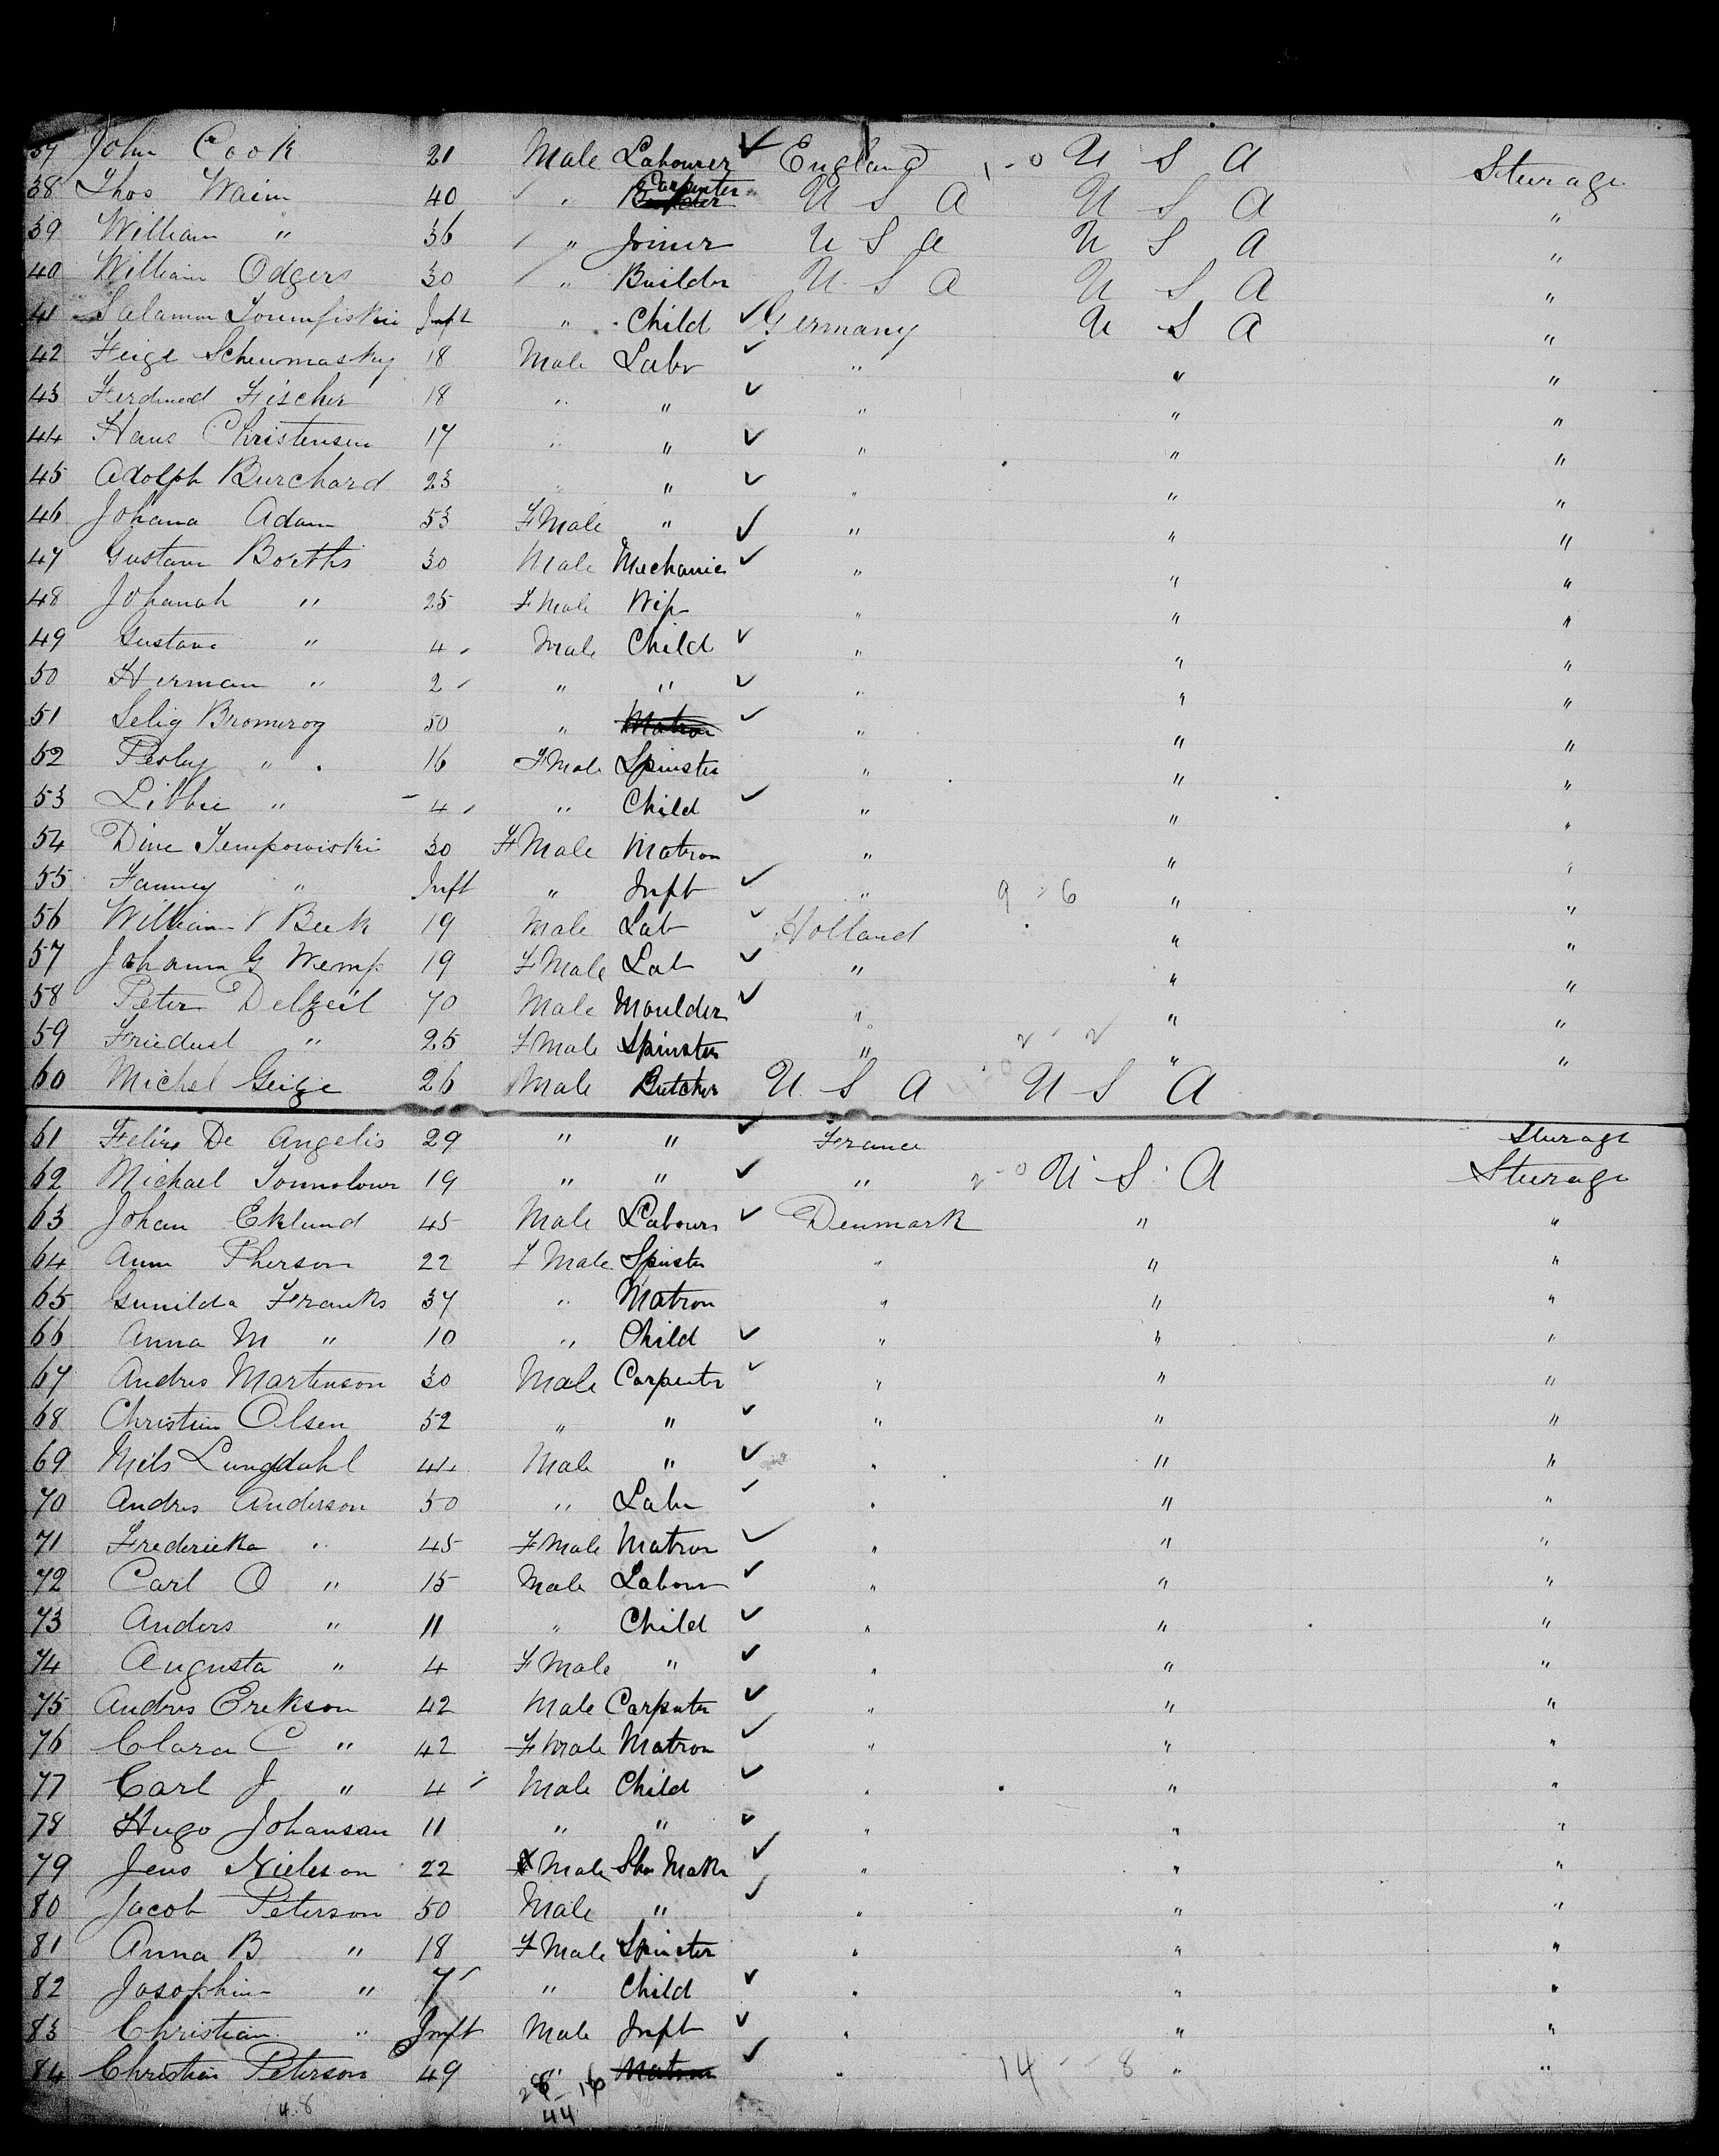 37 John Cook 21 Male Labourer ✓ England 1-0 U S A Sturage
38 Thos Wainn 40 " Carpenter U S A U S A "
39 William " 36 " Joiner U S A U S A "
40 William Odgers 30 " Builder U S A U S A "
41 Salamon Inft " Child ✓ Germany U S A "
42 Feige 18 Male Labr ✓ " " "
43 Ferdinand Fischer 18 " " ✓ " " "
44 Hans Christensen 17 " " ✓ " " "
45 Adolph Burchard 23 " " ✓ " " "
46 Johana Adam 53 F Male " ✓ " " "
47 Gustave 30 Male Mechanic ✓ " " "
48 Johanah " 25 F Male Wife " " "
49 Gustave " 4 Male Child ✓ " " "
50 Herman " 2 " " ✓ " " "
51 Selig Bromerog 50 " Matron ✓ " " "
52 Pesley " 16 F Male Spinster " " "
53 Libbie " 4 " Child ✓ " " "
54 Dine Tempowiski 30 F Male Matron " " "
55 Fanney " Inft " Inft ✓ " 9 - 6 " "
56 William V Beek 19 Male Lab ✓ Holland " "
57 Johann G Wemp 19 F Male Lab ✓ " " "
58 Peter Delzeil 70 Male Moulder ✓ " " "
59 " 25 F Male Spinster " 2 - 2 " "
60 Michel Geige 26 Male Butcher U S A U S A
61 De Angelis 29 " " ✓ France Sturage
62 Michael 19 " " ✓ " 2-0 U S A Sturage
63 Johan Eklund 45 Male Labourer ✓ Denmark " "
64 Ann Pherson 22 F Male Spinster " " "
65 Gunilda Franks 37 " Matron " " "
66 Anna M " 10 " Child ✓ " " "
67 Andres Martenson 30 Male Carpenter ✓ " " "
68 Christian Olsen 52 " " ✓ " " "
69 Nils Lungdahl 44 Male " ✓ " " "
70 Andres Anderson 50 " Labr ✓ " " "
71 Fredericka " 45 F Male Matron ✓ " " "
72 Carl O " 15 Male Labour ✓ " " "
73 Anders " 11 " Child ✓ " " "
74 Augusta " 4 F Male " ✓ " " "
75 Andres Erikson 42 Male Carpenter ✓ " " "
76 Clara C " 42 F Male Matron ✓ " " "
77 Carl J " 4 Male Child ✓ " " "
78 Hugo Johansan 11 " " ✓ " " "
79 Jens Nielson 22 Male Shoe Maker ✓ " " "
80 Jacob Peterson 50 Male " ✓ " " "
81 Anna B " 18 F Male Spinster " " "
82 Josophine " 7 " Child ✓ " " "
83 Christian " Inft Male Inft ✓ " " "
84 Christian Peterson 49 " Matron ✓ " 14 - 8 " "
48 28 - 16
44